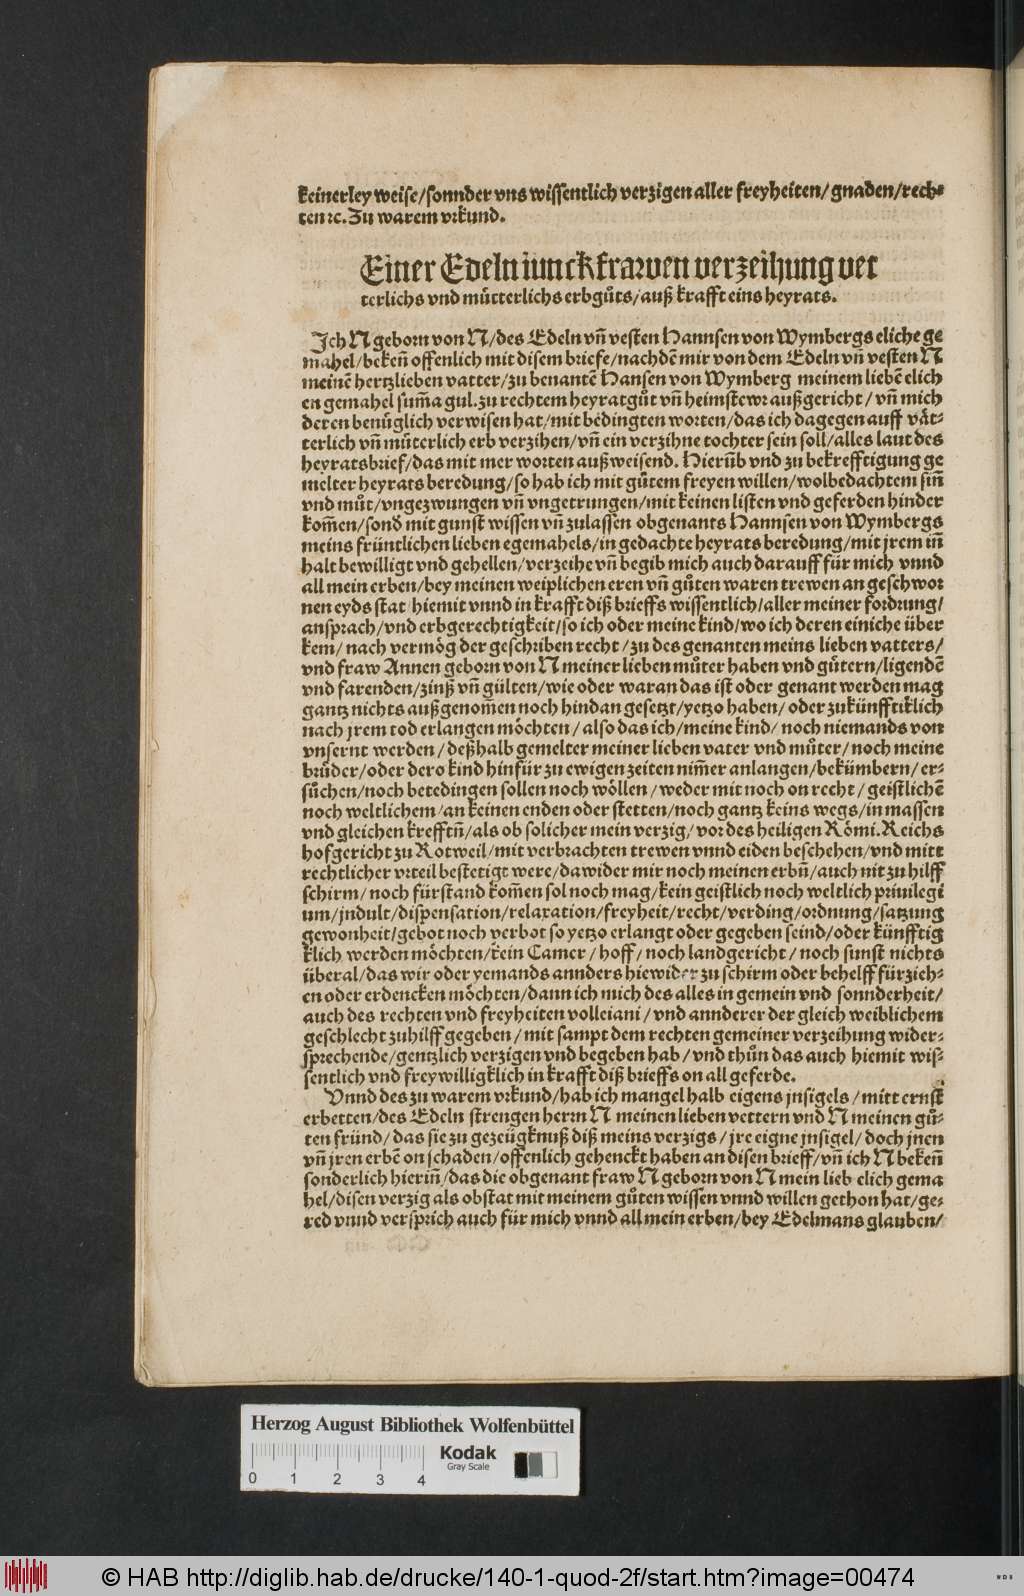 keinerley weise/sonnder vns wissentlich verzigen aller freyheiten/gnaden/rech⸗
ten ꝛc. Zu warem vrkund.
Einer Edeln iunckfrawen verzeihung vet
terlichs vnd mütterlichs erbgůts/auß krafft eins heyrats.
Ich N geborn von N/des Edeln vn̄ vesten Hannsen von Wymbergs eliche ge
mahel/beken̄ offenlich mit disem briefe/nachdē mir von dem Edeln vn̄ vesten N
meinē hertzlieben vatter/zu benantē Hansen von Wymberg meinem liebē elich
en gemahel sum̄a gul. zu rechtem heyratgůt vn̄ heimstewr außgericht/vn̄ mich
deren benüglich verwisen hat/mit bedingten worten/das ich dagegen auff vät⸗
terlich vn̄ müterlich erb verzihen/vn̄ ein verzihne tochter sein soll/alles laut des
heyratsbrief/das mit mer worten außweisend. Hierüb vnd zu bekrefftigung ge
melter heyrats beredung/so hab ich mit gůtem freyen willen/wolbedachtem sin̄
vnd můt/vngezwungen vn̄ vngetrungen/mit keinen listen vnd geferden hinder
kom̄en/sond mit gunst wissen vn̄ zulassen obgenants Hannsen von Wymbergs
meins früntlichen lieben egemahels/in gedachte heyrats beredung/mit jrem in̄
halt bewilligt vnd gehellen/verzeihe vn̄ begib mich auch darauff für mich vnnd
all mein erben/bey meinen weiplichen eren vn̄ gůten waren trewen an geschwor
nen eyds stat hiemit vnnd in krafft diß brieffs wissentlich/aller meiner fordrung/
ansprach/vnd erbgerechtigkeit/so ich oder meine kind/wo ich deren einiche über
kem/nach vermög der geschriben recht/zu des genanten meins lieben vatters/
vnd fraw Annen geborn von N meiner lieben můter haben vnd gůtern/ligendē
vnd farenden/zinß vn̄ gülten/wie oder waran das ist oder genant werden mag
gantz nichts außgenom̄en noch hindan gesetzt/yetzo haben/oder zukünfftiklich
nach jrem tod erlangen möchten/also das ich/meine kind/noch niemands von
vnsernt werden/deßhalb gemelter meiner lieben vater vnd můter/noch meine
brůder/oder dero kind hinfür zu ewigen zeiten nim̄er anlangen/bekümbern/er⸗
sůchen/noch betedingen sollen noch wöllen/weder mit noch on recht/geistlichē
noch weltlichem/an keinen enden oder stetten/noch gantz keins wegs/in massen
vnd gleichen krefftn̄/als ob solicher mein verzig/vor des heiligen Römi. Reichs
hofgericht zu Rotweil/mit verbrachten trewen vnnd eiden beschehen/vnd mitt
rechtlicher vrteil bestetigt were/dawider mir noch meinen erbn̄/auch nit zu hilff
schirm/noch fürstand kom̄en sol noch mag/kein geistlich noch weltlich priuilegi
um/jndult/dispensation/relaxation/freyheit/recht/verding/ordnung/satzung
gewonheit/gebot noch verbot so yetzo erlangt oder gegeben seind/oder künfftig
klich werden möchten/kein Camer/hoff/noch landgericht/noch sunst nichts
überal/das wir oder yemands annders hiewider zu schirm oder behelff fürzieh⸗
en oder erdencken möchten/dann ich mich des alles in gemein vnd sonnderheit/
auch des rechten vnd freyheiten volleiani/vnd annderer der gleich weiblichem
geschlecht zuhilff gegeben/mit sampt dem rechten gemeiner verzeihung wider⸗
sprechende/gentzlich verzigen vnd begeben hab/vnd thůn das auch hiemit wis⸗
sentlich vnd freywilligklich in krafft diß brieffs on all geferde.
Vnnd des zu warem vrkund/hab ich mangelhalb eigens jnsigels/mitt ernst
erbetten/des Edeln strengen herrn N meinen lieben vettern vnd N meinen gů⸗
ten fründ/das sie zu gezeügknuß diß meins verzigs/jre eigne jnsigel/doch jnen
vn̄ jren erbē on schaden/offenlich gehenckt haben an disen brieff/vn̄ ich N beken̄
sonderlich hierin̄/das die obgenant fraw N geborn von N mein lieb elich gema
hel/disen verzig als obstat mit meinem gůten wissen vnnd willen gethon hat/ge⸗
red vnnd versprich auch für mich vnnd all mein erben/bey Edelmans glauben/
Herzog August Bibliothek Wolfenbüttel
Kodak
Gray Scale
0 1 2 3 4
© HAB http://diglib.hab.de/drucke/140-1-quod-2f/start.htm?image=00474